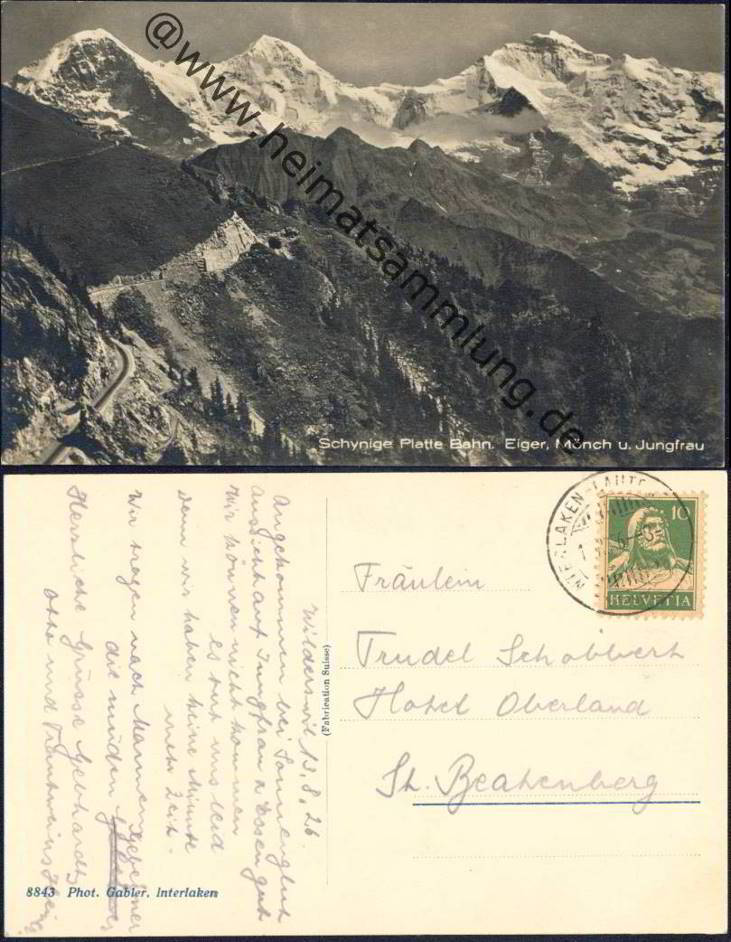 @www.heimatsammlung.de
Schynige Platte Bahn. Eiger, Mönch u. Jungfrau
INTERLAKEN
10
HELVETIA
Fräulein
Trudel
Hotel Oberland
St. Beatenberg
(Fabrication Suisse)
Wilderswil 13.8.26.
Angekommen bei Sonnenglut
Aussicht auf Jungfrau u Essen gut
Wir können nicht kommen
es tut uns leid
denn wir haben keine Minute
mehr Zeit.
Wir tragen nach Manneng
die müden
Herzliche Grüsse Gebhardts
Otto und
8843 Phot. Gabler, Interlaken